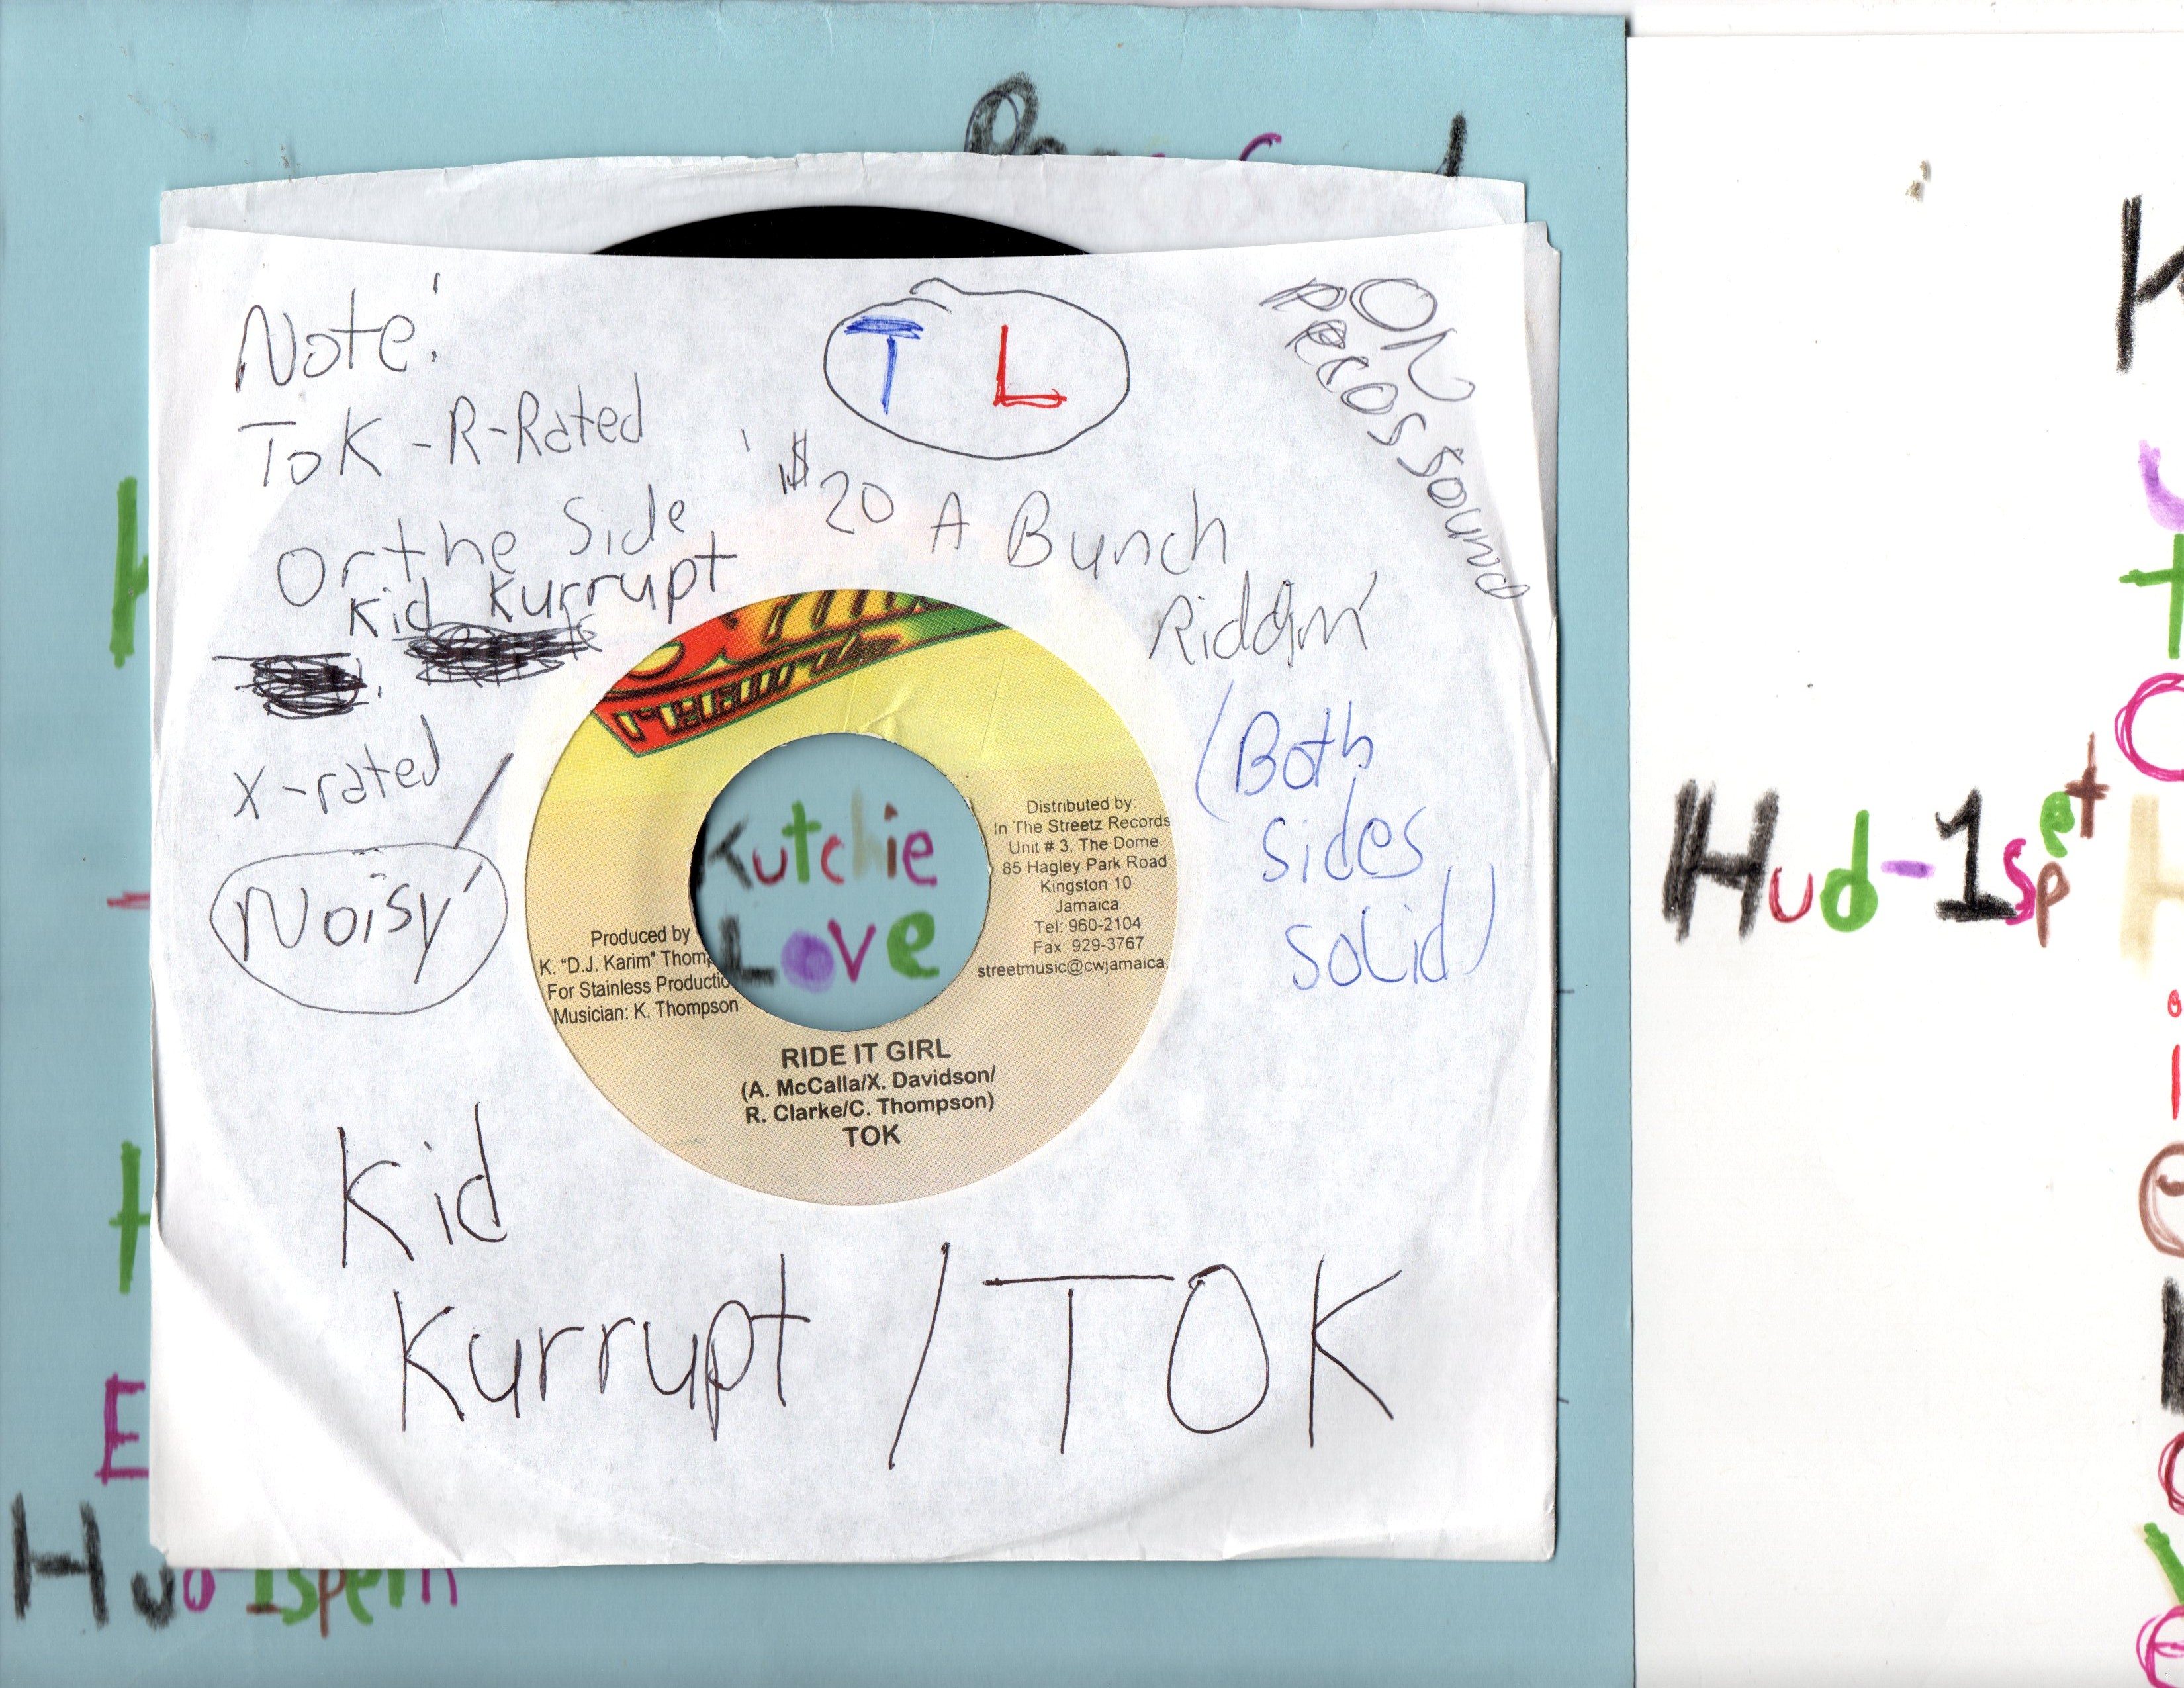 Note!
T L
TOK -R-Rated
$20 A Bunch
Riddim
Or the Side
Kid Kurrupt
X-rated
Noisy
(Both
sides
solid)
sound
records
Kutchie
Love
Produced by
K. "D.J. Karim" Thomp
For Stainless Productio
Musician: K. Thompson
Distributed by:
In The Streetz Records
Unit # 3. The Dome
85 Hagley Park Road
Kingston 10
Jamaica
Tel: 960-2104
Fax: 929-3767
streetmusic@cwjamaica.
RIDE IT GIRL
(A. McCalla/X. Davidson/
R. Clarke/C. Thompson)
TOK
Kid
Kurrupt / TOK
Hud-1spet
E